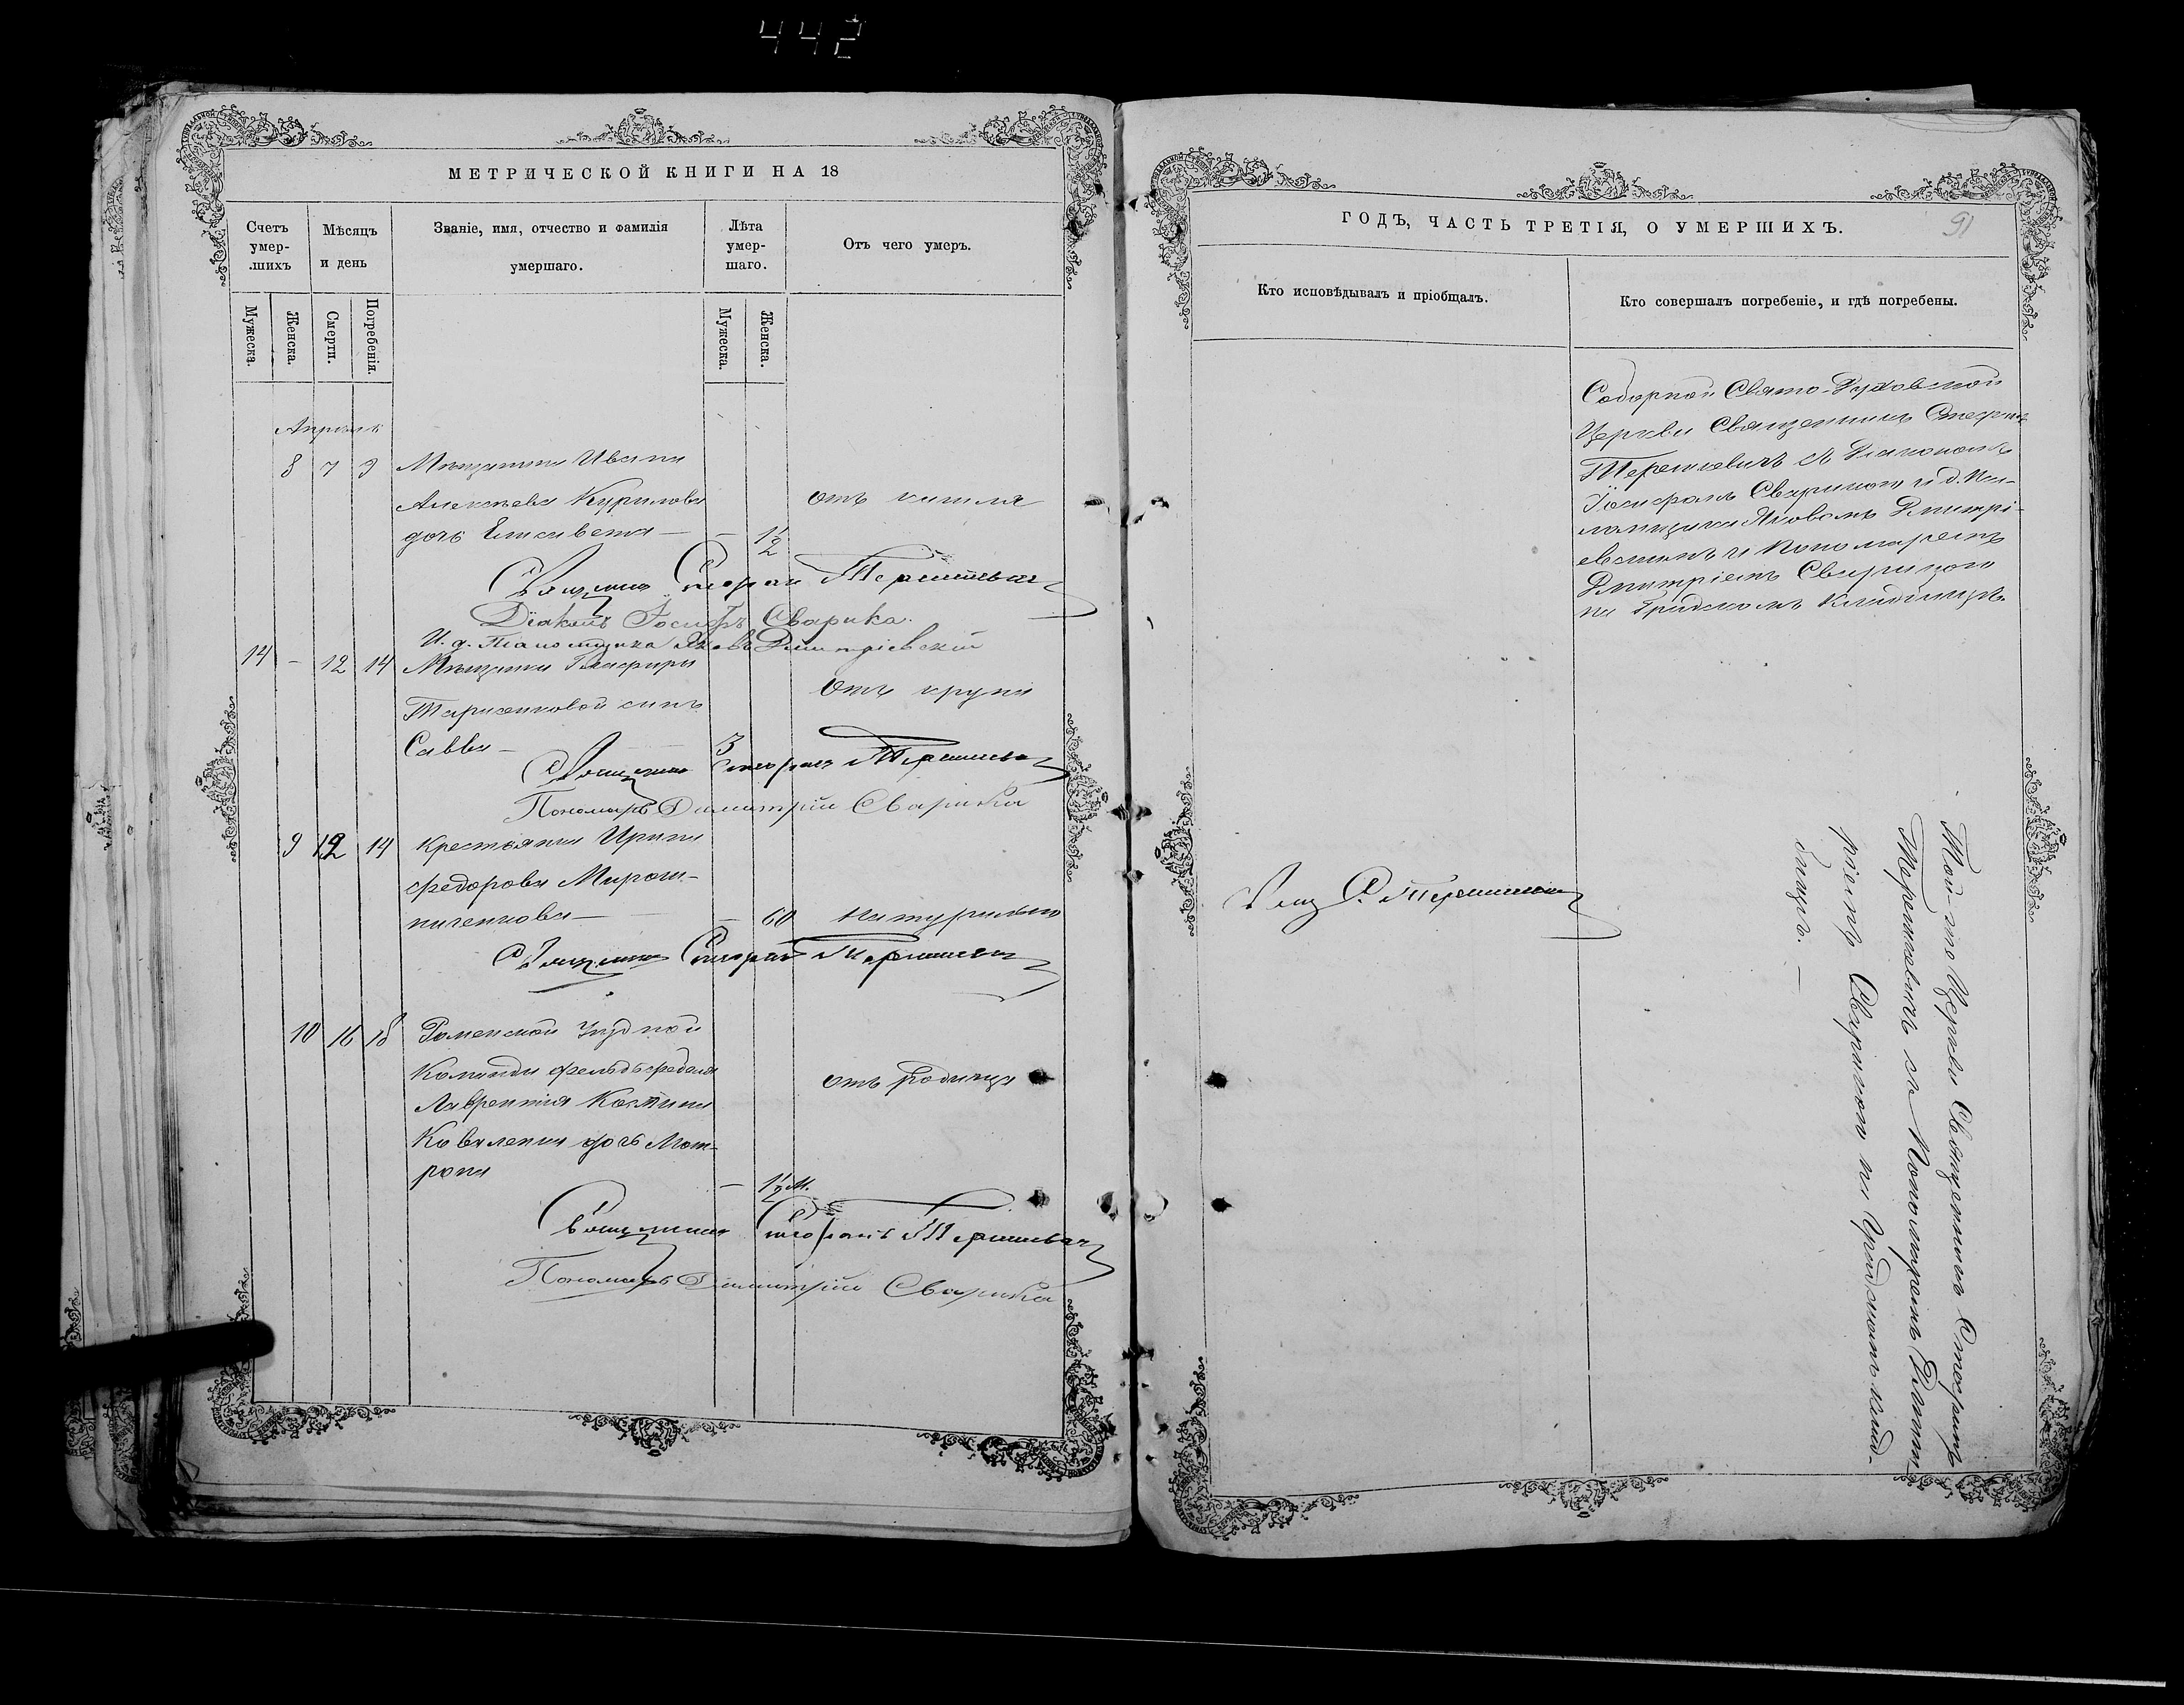 442
МЕТРИЧЕСКОЙ КНИГИ НА 18
Счетъ умер-шихъ
Мѣсяцъ и день
Званіе, имя, отчество и фамилія умершаго.
Лѣта умер-шаго.
Отъ чего умеръ.
Мужеска.
Женска.
Смерти.
Погребенія.
Мужеска.
Женска.
Апрѣль
8 7 9 Мѣщанина Ивана
Алексѣева Курилова
отъ кашля
дочь Елисавета — — 1/2
Священникъ Стефанъ Терешкевичъ
Діаконъ Іосифъ Сварика.
И. д. Псаломщика Яковъ Дмитріевскій
14 — 12 14 Мѣщанки Глафиры
отъ крупа
сынъ
Савва — 3
Священникъ Стефанъ Терешкевичъ
Пономарь Димитрій Сварика
9 12 14 Крестьянка Ирина
Федорова Мирош-
ниченкова — — 60 натурально
Священникъ Стефанъ Терешкевичъ
10 16 18 Роменской уѣздной
Команды фельдфебеля
отъ родимца
Лаврентія
дочь Мат-
рона — 1/2 м.
Священникъ Стефанъ Терешкевичъ
Пономарь Димитрій Сварика
ГОДЪ, ЧАСТЬ ТРЕТІЯ, О УМЕРШИХЪ.
91
Кто исповѣдывалъ и пріобщалъ.
Кто совершалъ погребеніе, и гдѣ погребены.
Соборной Свято-Духовской
Церкви Священникъ Стефанъ
Терешкевичъ съ Діакономъ
Іосифомъ Сварикою и д. Пса-
ломщика Яковомъ Дмитрі-
евскимъ и Пономаремъ
Дмитріемъ Сварикою
на Градскомъ кладбищѣ.
Свящ. С. Терешкевичъ
Той-же Церкви Священникъ Стефанъ
Терешкевичъ съ Пономаремъ Димит-
ріемъ Сварикою на Градскомъ клад-
бищѣ. —